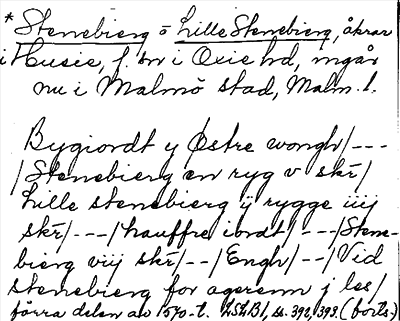 * Stenebierg o Lille Stenebierg, åkrar
i Husie, f. sn i Oxie hd, ingår
nu i Malmö stad, Malm. l.
Bygiordt y Østre wongh/---
/Stenebierg en ryg v skr̄/
Lille stenebierg ij rygge iiij
skr̄/---/hauffre ibrdt/---/Stene-
bierg viij skr̄/--/Engh/--/Vid
stenebierg for agerenn j les/
förra delen av 1570-t. LSLB1, ss. 392, 393. (forts.)